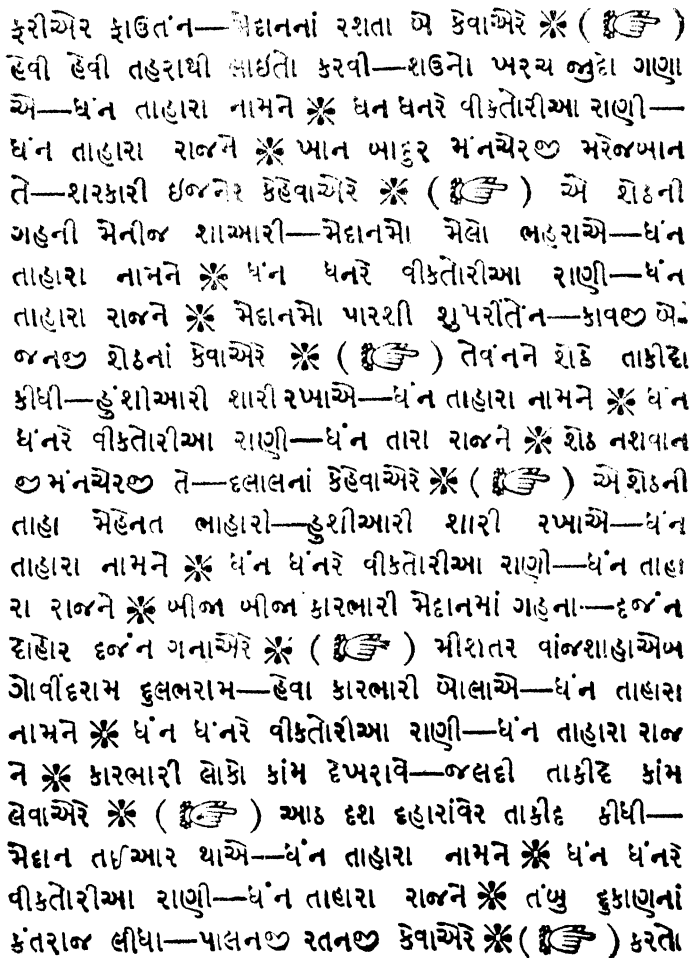 ફરીએર ફાઉતંન—મેદાનનાં રશતા બે કેવાએરે ❋ ( ☞ )
હેવી હેવી તહરાથી લાઇતો કરવી—શઉનો ખરચ જુદો ગણા
એ—ધંન તાહારા નામને ❋ ધન ધનરે વીકતોરીઆ રાણી—
ધંન તાહારા રાજને ❋ ખાન બાદુર મંનચેરજી મરેજબાન
તે—શરકારી ઇજનેર કેહેવાએરે ❋ ( ☞ ) એ શેઠની
ગહની મેનીજ શાઆરી—મેદાનમો મેલો ભહરાએ—ધંન
તાહારા નામને ❋ ધંન ધનરે વીકતોરીઆ રાણી—ધંન
તાહારા રાજને ❋ મેદાનમો પારશી શુપરીંતેંન—કાવજી બે-
જનજી શેઠનાં કેવાએરે ❋ ( ☞ ) તેવંનને શેઠે તાકીદો
કીધી—હુંશીઆરી શારી રખાએ—ધંન તાહારા નામને ❋ ધંન
ધંનરે વીકતોરીઆ રાણી—ધંન તારા રાજને ❋ શેઠ નશવાન
જી મંનચેરજી તે—દલાલનાં કેહેવાએરે ❋ ( ☞ ) એ શેઠની
તાહા મેહેનત ભાહારો—હુશીઆરી શારી રખાએ—ધંન
તાહારા નામને ❋ ધંન ધંનરે વીકતોરીઆ રાણી—ધંન તાહા
રા રાજને ❋ બીજા બીજા કારભારી મેદાનમાં ગહના—દર્જન
દાહેાર દર્જન ગનાએરે ❋ ( ☞ ) મીશતર વાંજશાહાએબ
ગોવીંદરામ દુલભરામ—હેવા કારભારી બોલાએ—ધંન તાહારા
નામને ❋ ધંન ધંનરે વીકતોરીઆ રાણી—ધંન તાહારા રાજ
ને ❋ કારભારી લોકો કાંમ દેખરાવે—જલદી તાકીદે કાંમ
લેવાએરે ❋ ( ☞ ) આઠ દશ દહારાંવેર તાકીદ કીધી—
મેદાન તઈઆર થાએ—ધંન તાહારા નામને ❋ ધંન ધંનરે
વીકતોરીઆ રાણી—ધંન તાહારા રાજને ❋ તંબુ દુકાણનાં
કંતરાજ લીધા—પાલનજી રતનજી કેવાએરે ❋ ( ☞ ) કરતો